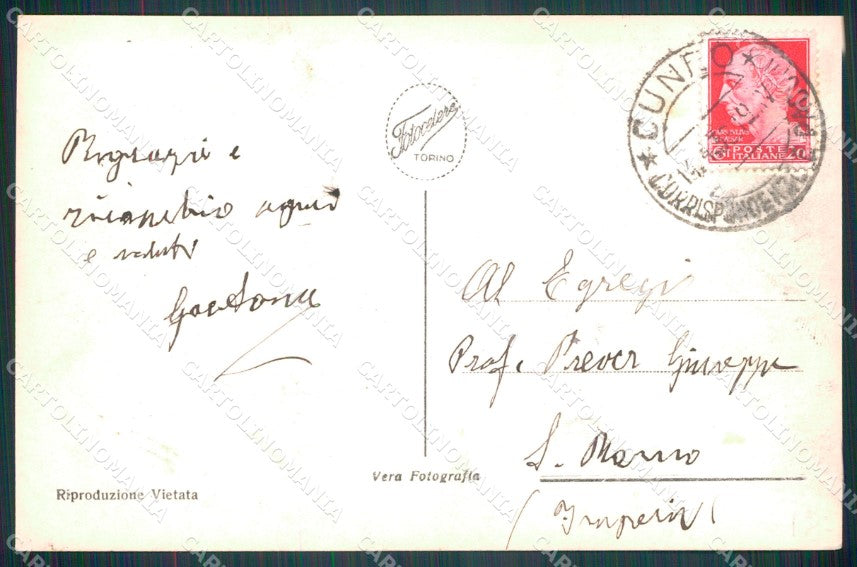 Ringrazio e
ricambio auguri
e saluti
Gaetano
Fotocelere
TORINO
CUNEO
CORRISPONDENZE
POSTE
ITALIANE 20
Al Egregi
Prof. Prever Giuseppe
S. Remo
(Imperia)
Vera Fotografia
Riproduzione Vietata
CARTOLINOMANIA